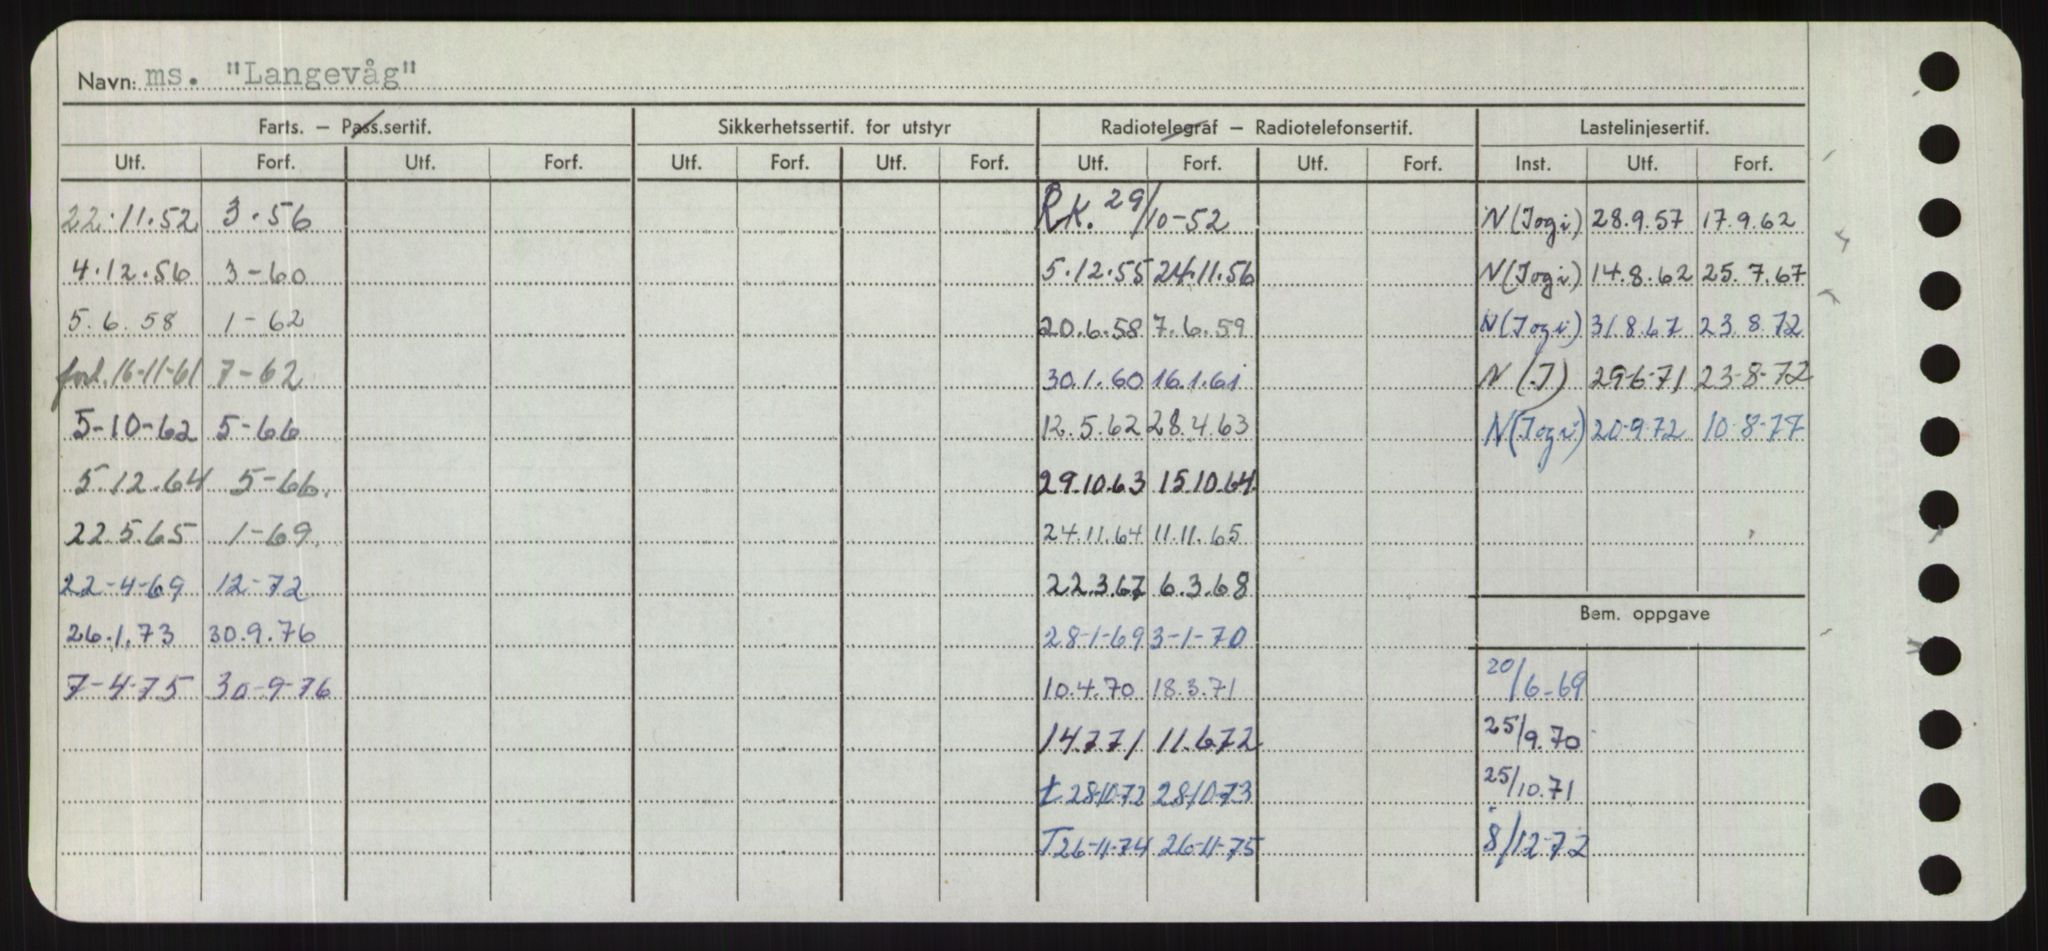 Navn: ms. "Langevåg"
Farts. – Pass.sertif. Sikkerhetssertif. for utstyr Radiotelegraf – Radiotelefonsertif. Lastelinjesertif.
Utf. Forf. Utf. Forf. Utf. Forf. Utf. Forf. Utf. Forf. Utf. Forf. Inst. Utf. Forf.
22.11.52 3.56 RK. 29/10-52 N(Jogi) 28.9.57 17.9.62
4.12.56 3-60 5.12.55 24.11.56 N(Jogi) 14.8.62 25.7.67
5.6.58 1-62 20.6.58 7.6.59 N(Jogi) 31.8.67 23.8.72
forl. 16-11-61 7-62 30.1.60 16.1.61 N(J) 29-6-71 23-8-72
5-10-62 5-66 12.5.62 28.4.63 N(Jogi) 20-9-72 10-8-77
5.12.64 5-66. 29.10.63 15.10.64
22.5.65 1-69. 24.11.64 11.11.65
22-4-69 12-72 22.3.67 6.3.68
Bem. oppgave
26.1.73 30.9.76 28-1-69 3-1-70
7-4-75 30-9-76 10.4.70 18.3.71 20/6-69
14.7.71 11.6.72 25/9.70
t 28-10-72 28-10-73 25/10.71
T 26-11-74 26-11-75 8/12-72